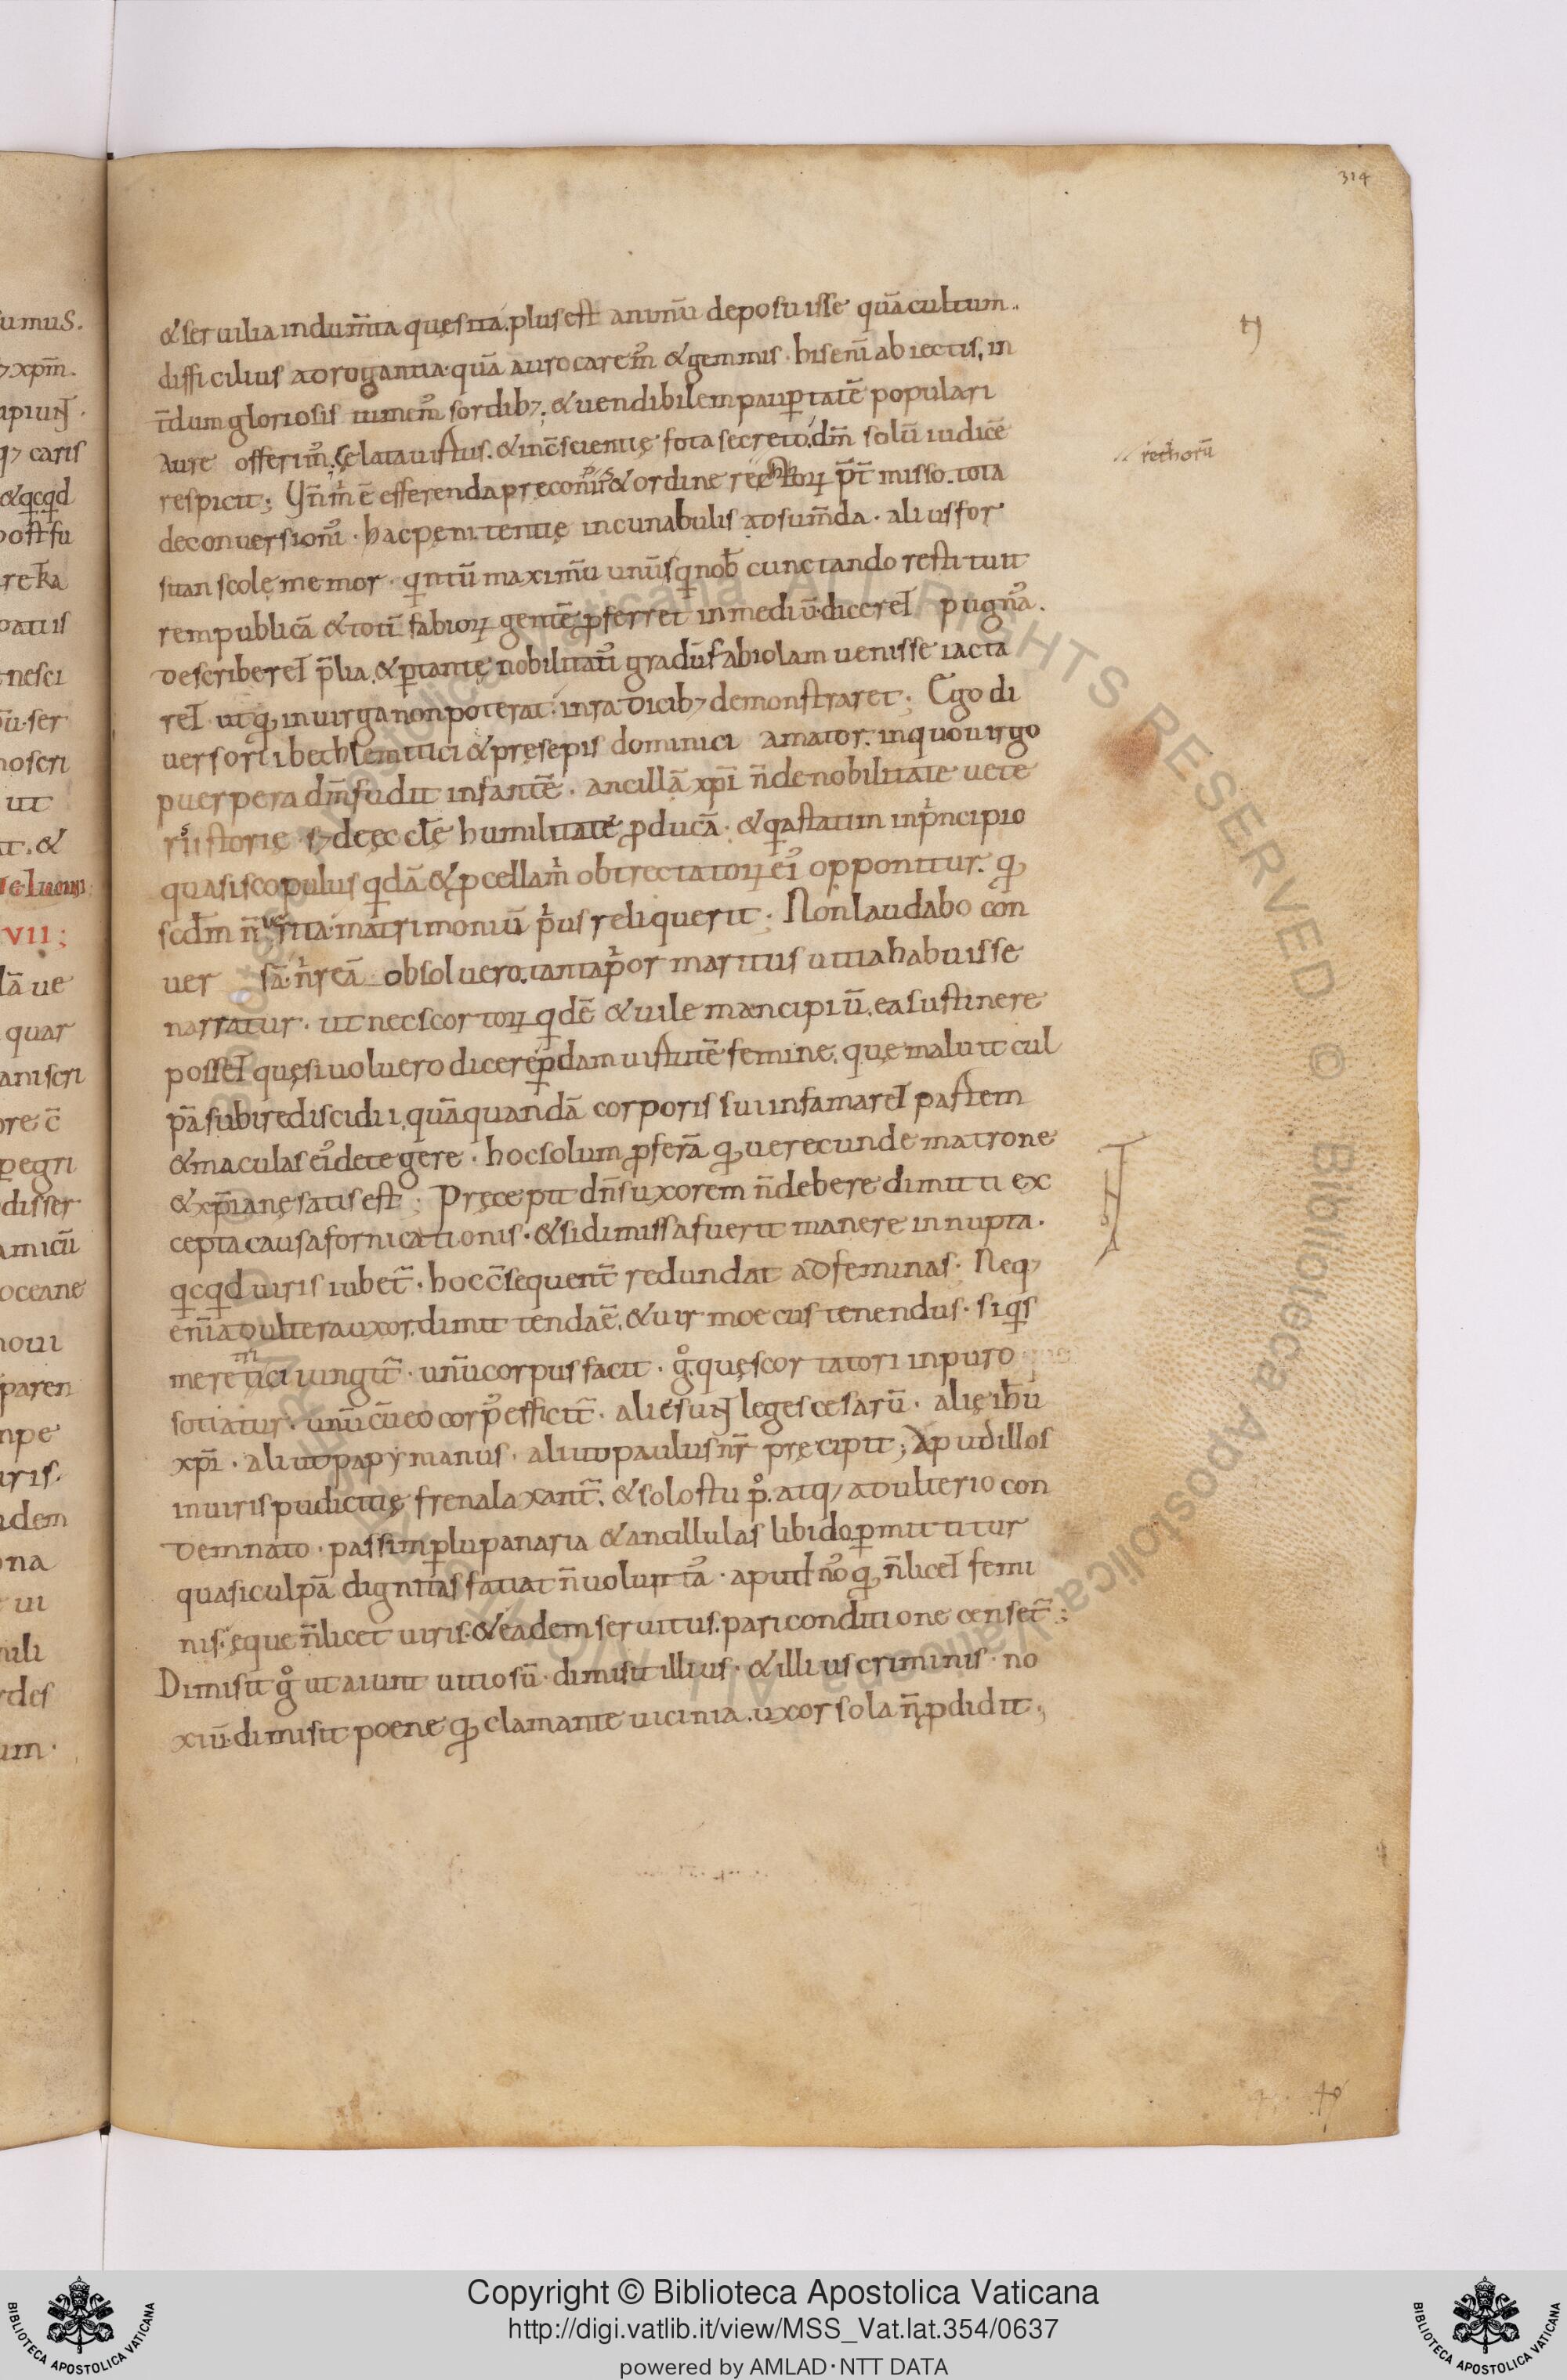 314
&seruilia indum̅ta quęsita. plus est animū deposuisse quā cultum..
difficilius adrogantia. quā auro carem᷒ & gemmis. his eni̅ abiectis, in
t̅dum gloriosis tumem᷒ sordib; & uendibilem pauꝑtatē populari
aure offerim᷒. Cęlata uirtus. & in c̅scientię fota secreto. dm̅ solū iudicē
respicit; Vn̅ m̓ ē efferenda pręconiis & ordine rethorꝝ p̅t̅misso. tota
rethorū
de conuersioni᷒. hac pęnitentię incunabulis adsum̅da. alius for
sitan scolę memor. qntū maximū unūs q nob̅ cunctando restituit
rempublicā & totū fabioꝝ gentē ꝓferret in mediū. diceret pugn᷒a.
describeret p̅lia. & ꝑ tantę nobilitati᷒ gradus fabiolam uenisse iacta
ret. ut qꝫ in uirga non poterat. in radicib; demonstraret; Ego di
uersorii bethlemitici & pręsepis dominici amator. in quo uirgo
puerpera dm̅ fudit infantē. ancillā xp̅i n̅ de nobilitate uete
ris istorię. sꝫ de ęcclę̅ humilitate ꝓducā. & qa statim in pncipio
quasi scopulus qdā & pcella m̓ obtrectatoꝝ ei᷒ opponitur. qꝫ
scdm̅ n̅ sita matrimoniū pus reliquerit; Non laudabo con
uer sā. n̓ reā obsoluero. tanta por maritus uitia habuisse
narratur. ut nec scortoꝝ qdē & uile mancipiū. ea sustinere
posset quę si uoluero dicere pdam uirtutē femine. quę maluit cul
pā subire discidii. quā quandā corporis sui infamaret partem
& maculas ei᷒ detegere. hoc solum ꝓferā qꝫ uerecunde matrone
& xp̅ianę satis est; Pręcepit dn̅s uxorem n̅ debere dimitti ex
cepta causa fornicationis. & si dimissa fuerit manere innupta.
qcqd uiris iubet̅. hoc c̅sequent̅ redundat ad feminas. Neqꝫ
eni̅ adultera uxor. dimittenda ē. & uir moecus tenendus. si qs
meretrici iungit̅. unū corpus facit. g̊. quę scortatori inpuro
sotiatur. unū cū eo corp᷒ efficit̅. alię sunt leges cesarū. alię ih̅u
xp̅i. aliud papymanus. aliud paulus nr̅ pręcipit; Apud illos
in uiris pudicitię frena laxant̅. & solo stup̊. atqꝫ adulterio con
demnato. passim ꝑ lupanaria & ancillulas libido ꝑmittitur
quasi culpā dignitas fatiat n̅ uolunt᷒a. apud no᷒ qꝫ n̅ licet femi
nis. eque n̅ licet uiris. & eadem seruitus. pari conditione censet̅;
Dimisit g̊ ut aiunt uitiosū. dimisit illius. & illius criminis. no
xiū. dimisit poene qꝫ clamante uicinia. uxor sola n̅ pdidit;
Copyright © Biblioteca Apostolica Vaticana
http://digi.vatlib.it/view/MSS_Vat.lat.354/0637
powered by AMLAD·NTT DATA
BIBLIOTECA APOSTOLICA VATICANA
BIBLIOTECA APOSTOLICA VATICANA